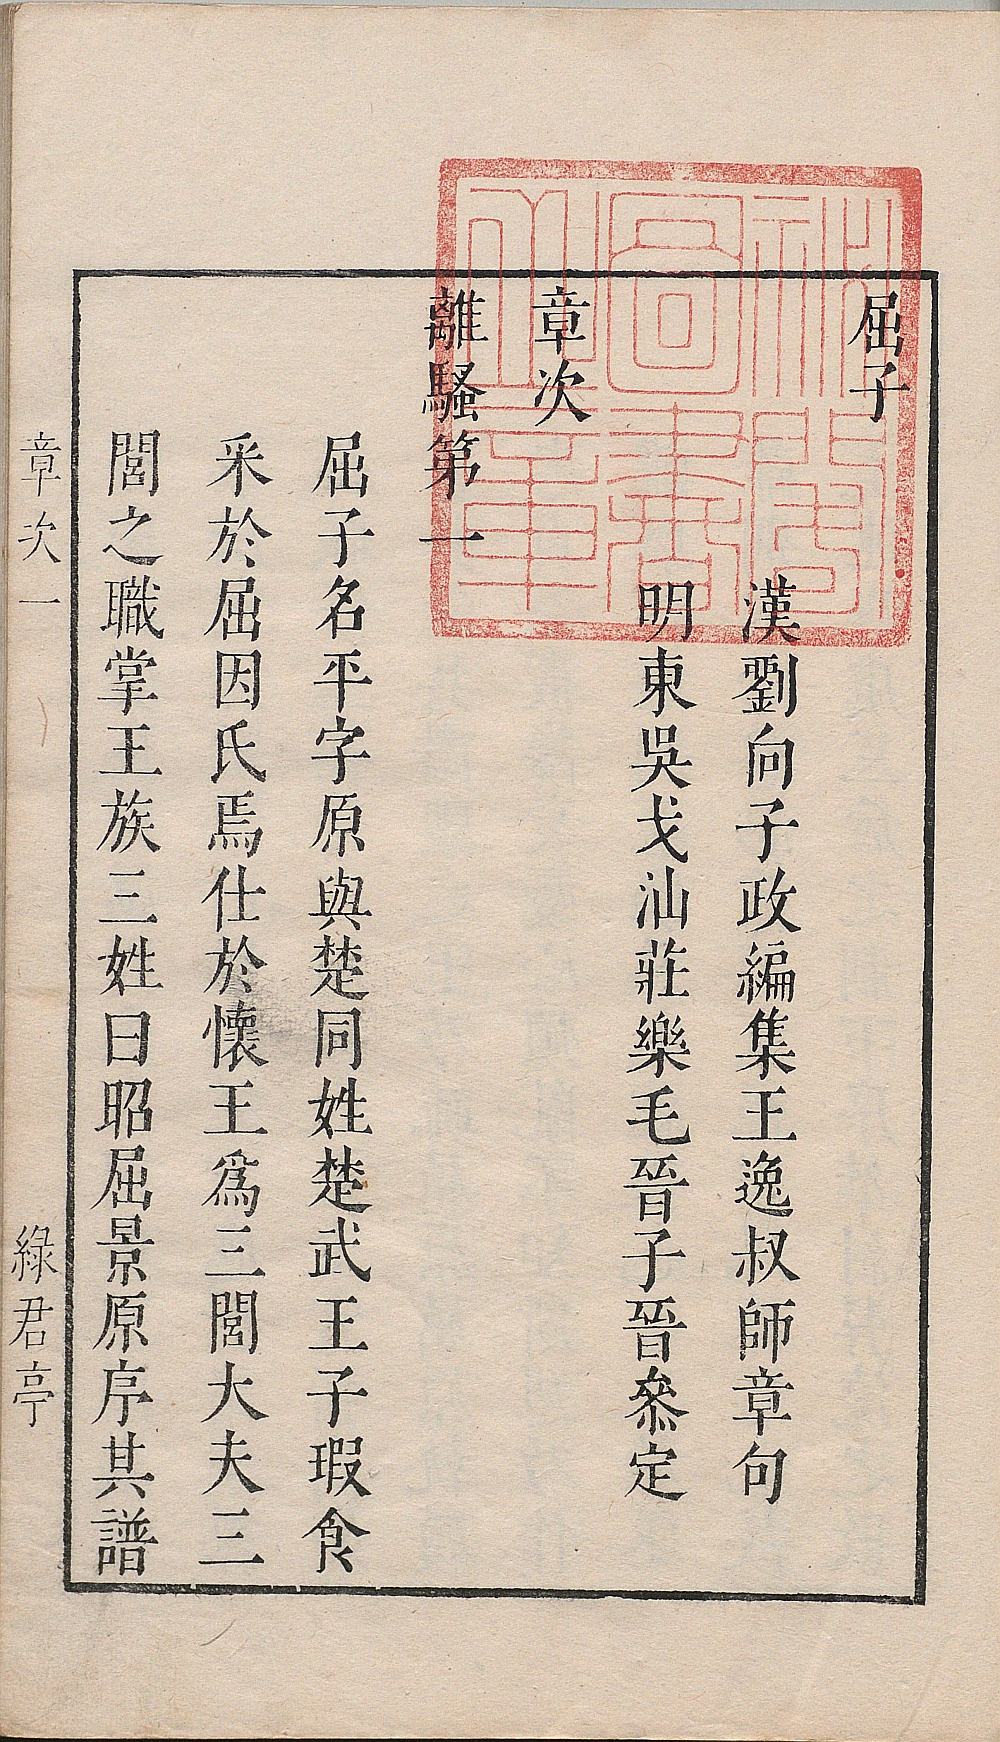 屈子
漢劉向子政編集王逸叔師章句
明東吳戈汕莊樂毛晉子晉叅定
章次
離騷第一
屈子名平字原與楚同姓楚武王子瑕食
采於屈因氏焉仕於懷王爲三閭大夫三
閭之職掌王族三姓曰昭屈景原序其譜
章次一
綠君亭
秘閣
圖書
之章